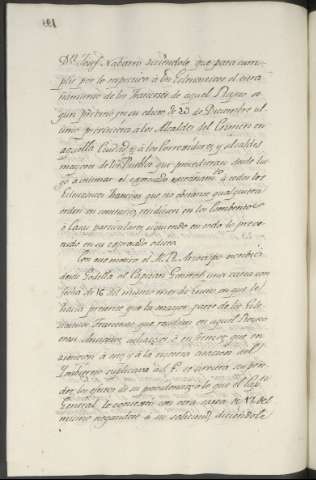 Dn. Josef Nabarro diciendole que para cum-
plir por lo respectivo a los Eclesiasticos el extra-
ñamiento de los Franceses de aquel Reyno, se-
gun previno yo en edicto de 23 de Diciembre ul-
timo previniera a los Alcaldes del Crimen en
aquella Ciudad, y a los Corregidores y alcaldes
mayores de los Pueblos que procedieran desde lue-
go a intimar el expresado extrañamto. a todos los
Eclesiasticos Franceses que no obstante qualquiera
orden en contrario, residiesen en los Combentos
o Casas particulares, siguiendo en todo lo preve-
nido en su expresado edicto.
Con este motivo el M. R. Arzobispo escribio
desde Godella al Capitan General una carta con
fecha de 16 del mismo mes de Enero, en que le
hacia presente que la mayor parte de los Ecle-
siasticos Franceses que residian en aquel Reyno
eran Ancianos, achacosos, o enfermos, que en
atencion a esto, y a la notoria
Gobierno suplicaba a S. E. se sirviera suspen-
der los efectos de su providencia, a lo que el Capn.
General, le contexto con otra carta de 17 del
mismo negandose a su solicitud, diciendole